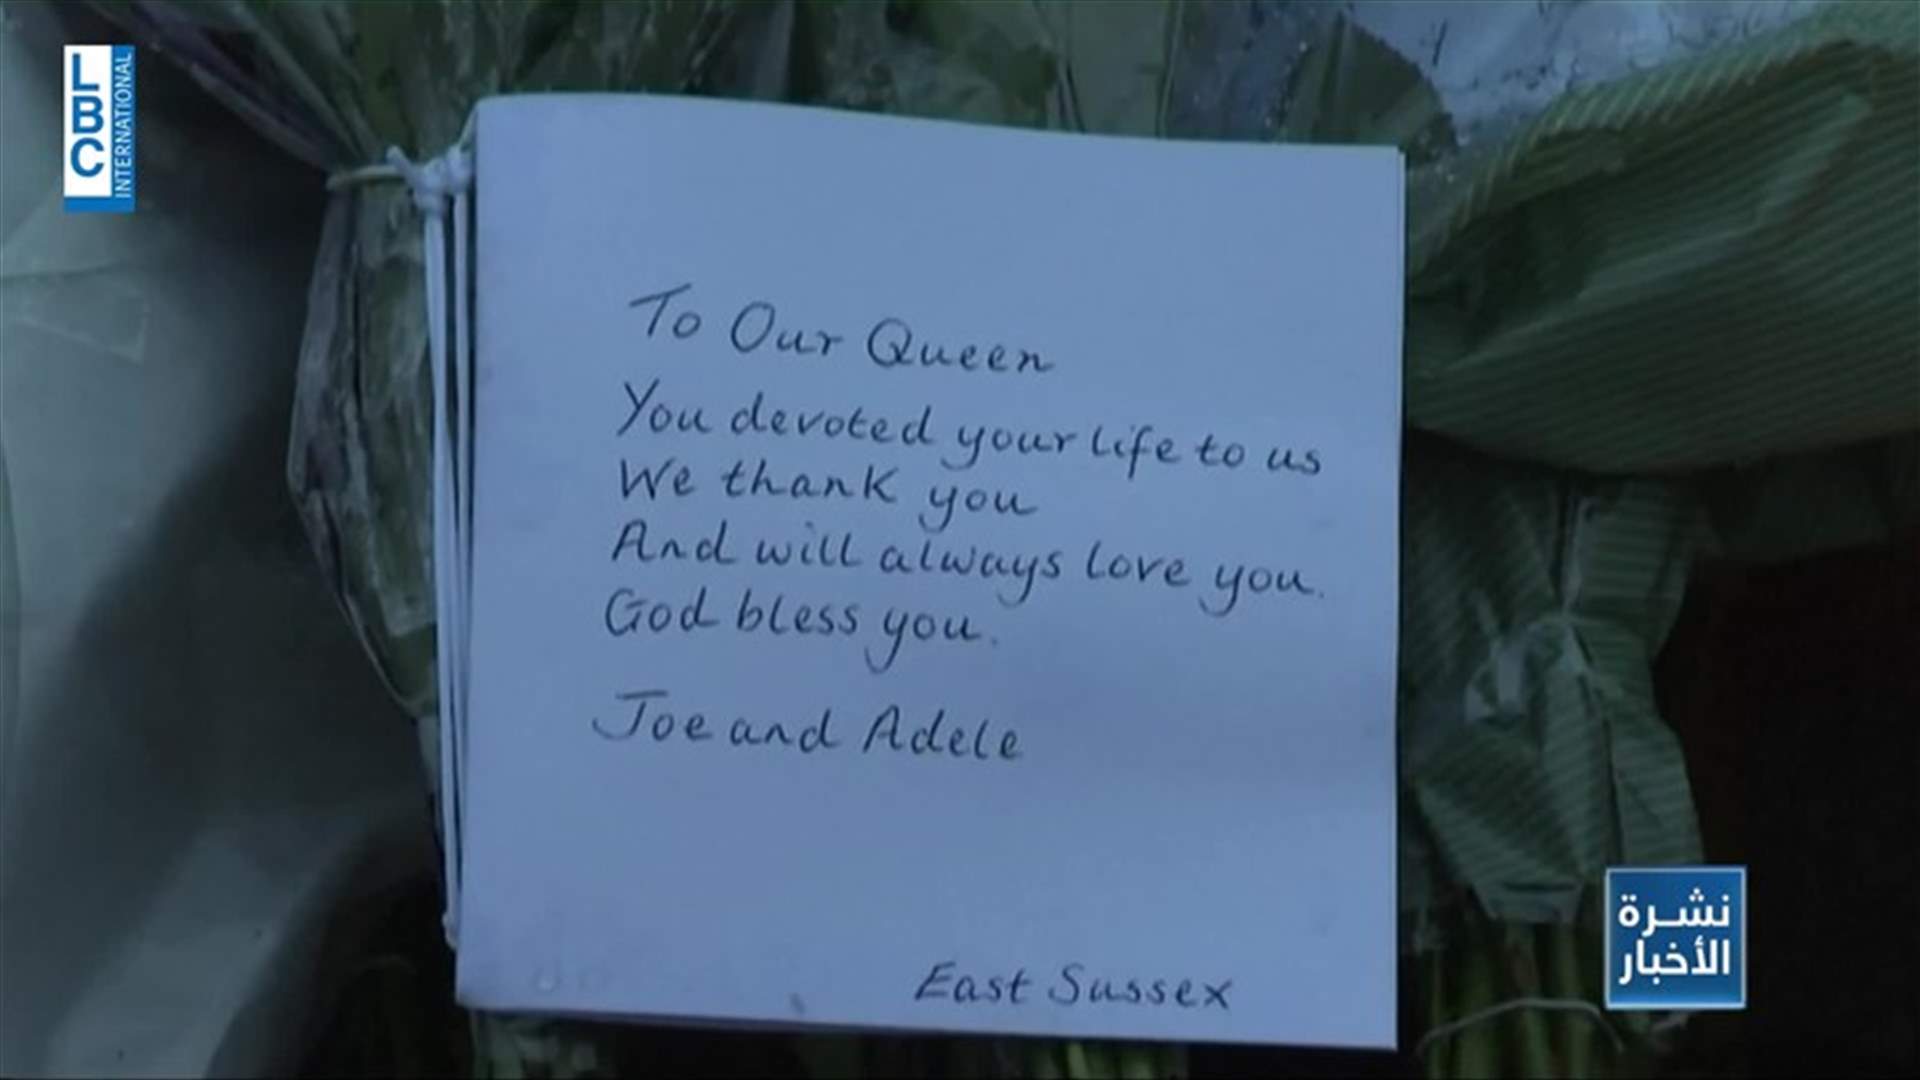 LBC
INTERNATIONAL
To Our Queen
You devoted your life to us
We thank you
And will always love you.
God bless you.
Joe and Adele
East Sussex
نشرة
الأخبار